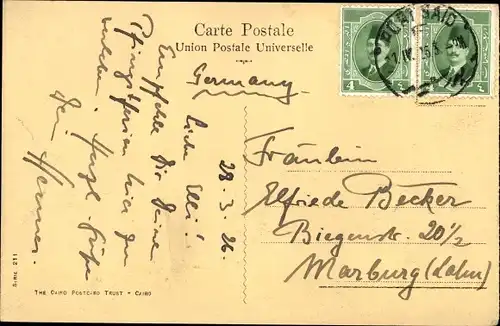 Carte Postale
Union Postale Universelle
Germany
PORT SAID
4
28.3.26.
Liebe Elli!
Empfehle Dir Deine
Pfingstferien hier zu
Herzl. Grüße
Dein Werner.
Fräulein
Elfriede Becker
Biegenstr. 20 1/2
Marburg (Lahn)
THE CAIRO POSTCARD TRUST - CAIRO